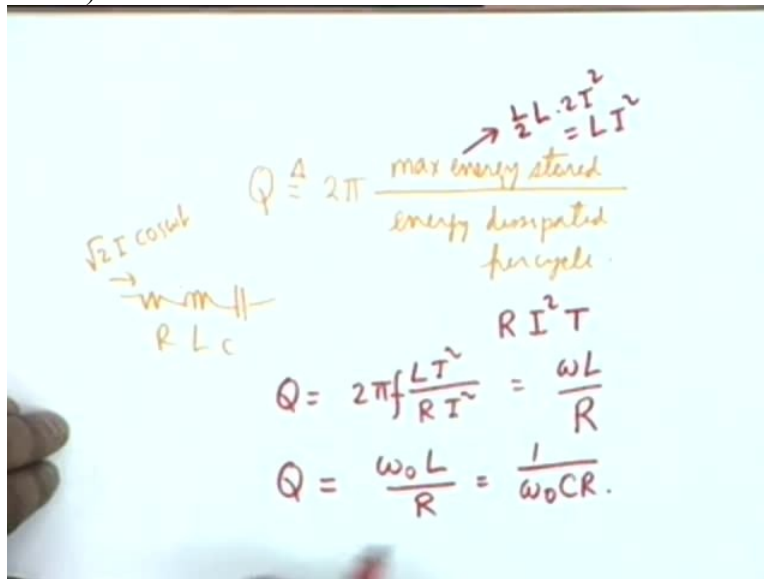 ½ L · 2I²
= LI²
Q ≜ 2π max energy stored / energy dissipated per cycle.
√2 I cosωt
R L C
R I² T
Q = 2πf LI² / R I² = ωL / R
Q = ω₀L / R = 1 / ω₀CR.